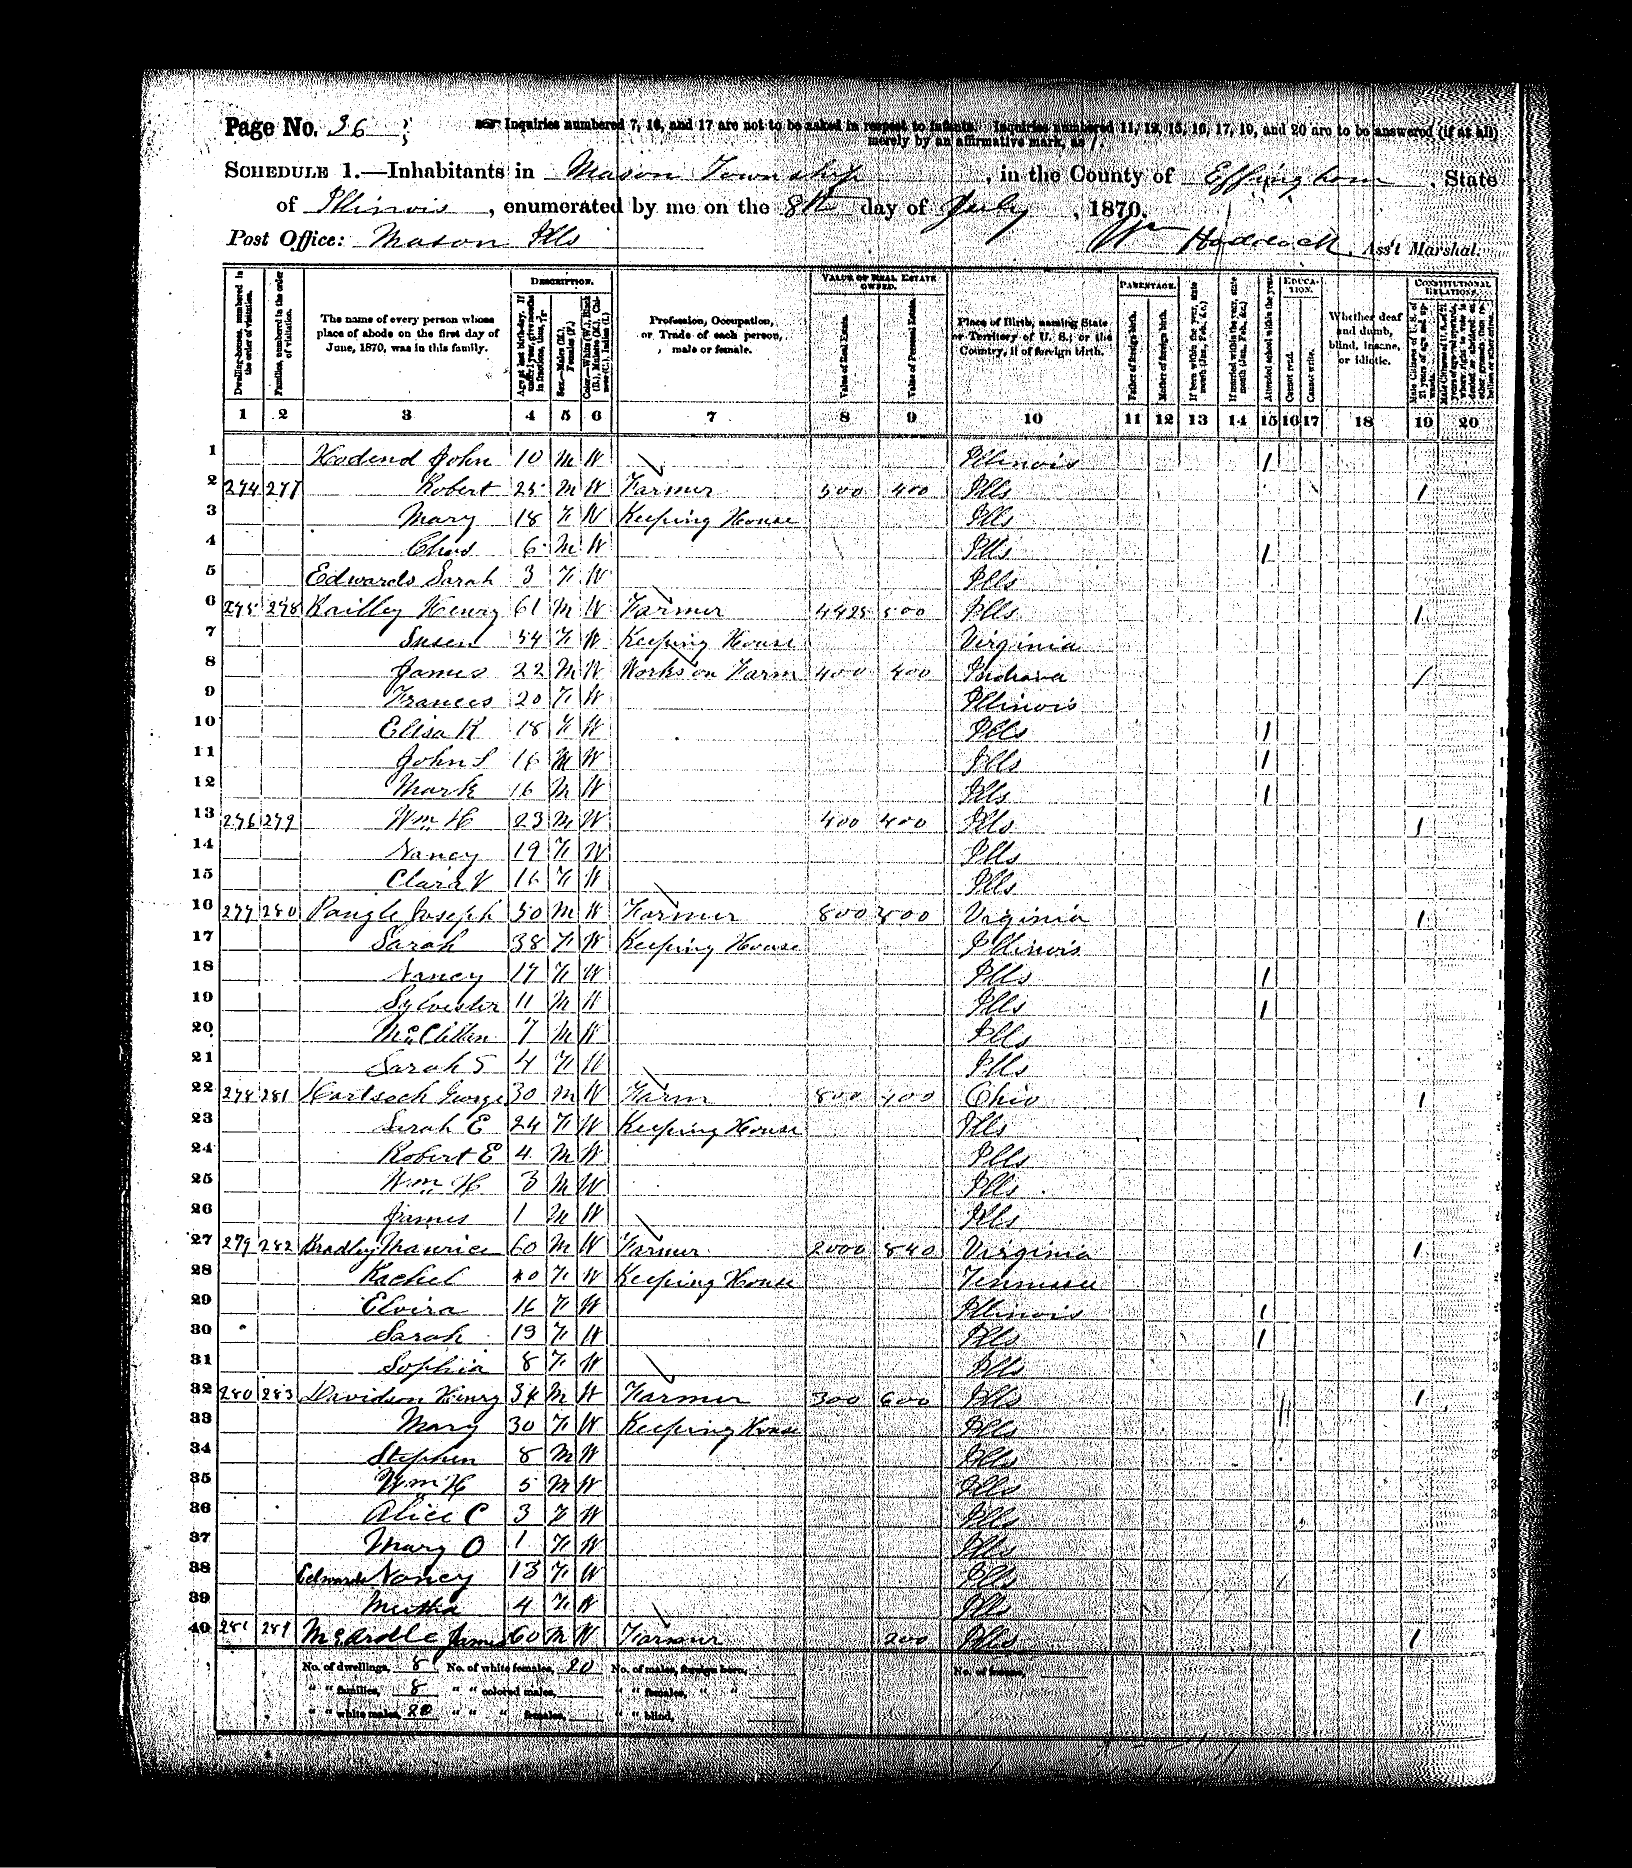 Page No. 36
Inquiries numbered 7, 16, and 17 are not to be asked in respect to infants. Inquiries numbered 11, 12, 15, 16, 17, 19, and 20 are to be answered (if at all)
merely by an affirmative mark, as /.
SCHEDULE 1.—Inhabitants in Mason Township, in the County of Effingham, State
of Illinois, enumerated by me on the 8th day of July, 1870.
Post Office: Mason Ills Wm Haddock, Ass't Marshal.
DESCRIPTION. VALUE OF REAL ESTATE OWNED. PARENTAGE. EDUCATION. CONSTITUTIONAL RELATIONS.
Dwelling-houses, numbered in the order of visitation.
Families, numbered in the order of visitation.
The name of every person whose place of abode on the first day of June, 1870, was in this family.
Profession, Occupation, or Trade of each person, male or female.
Value of Real Estate.
Value of Personal Estate.
Place of Birth, naming State or Territory of U. S.; or the Country, if of foreign birth.
Father of foreign birth.
Mother of foreign birth.
If born within the year, state month (Jan., Feb., &c.)
If married within the year, state month (Jan., Feb., &c.)
Attended school within the year.
Cannot read.
Cannot write.
Whether deaf and dumb, blind, insane, or idiotic.
1 2 3 4 5 6 7 8 9 10 11 12 13 14 15 16 17 18 19 20
1 John 10 M W Illinois /
2 274 277 Robert 25 M W Farmer 500 400 Ills /
3 Mary 18 F W Keeping House Ills
4 Chas 6 M W Ills /
5 Edwards Sarah 3 F W Ills
6 275 278 Railley Henry 61 M W Farmer 4425 500 Ills /
7 Susen 54 F W Keeping House Virginia
8 James 22 M W Works on Farm 400 400 Indiana /
9 Frances 20 F W Illinois
10 Elisa R 18 F W Ills /
11 John S 16 M W Ills /
12 Mark 16 M W Ills /
13 276 279 Wm H 23 M W 400 400 Ills /
14 Nancy 19 F W Ills
15 Clara V 16 F W Ills
16 277 280 Pangle Joseph 50 M W Farmer 800 800 Virginia /
17 Sarah 38 F W Keeping House Illinois
18 Nancy 17 F W Ills /
19 Sylvester 11 M W Ills /
20 McClellan 7 M W Ills
21 Sarah S 4 F W Ills
22 278 281 Hartsock George 30 M W Farm 800 400 Ohio /
23 Sarah E 24 F W Keeping House Ills
24 Robert E 4 M W Ills
25 Wm H 3 M W Ills
26 James 1 M W Ills
27 279 282 Bradley Maurice 60 M W Farmer 2000 840 Virginia /
28 Rachel 40 F W Keeping House Tennessee
29 Elvira 16 F W Illinois /
30 Sarah 13 F W Ills /
31 Sophia 8 F W Ills
32 280 283 Davidson Henry 34 M W Farmer 300 600 Ills /
33 Mary 30 F W Keeping House Ills
34 Stephen 8 M W Ills
35 Wm H 5 M W Ills
36 Alice C 3 F W Ills
37 Mary O 1 F W Ills
38 Edwards Nancy 13 F W Ills
39 4 F W Ills
40 281 284 McArdle James 60 M W Farmer 200 Ills /
No. of dwellings, 8 No. of white females, 20 No. of males, foreign born,
" " families, 8 " " colored males, " " females, " "
" " white males, 20 " " " females, " " blind,